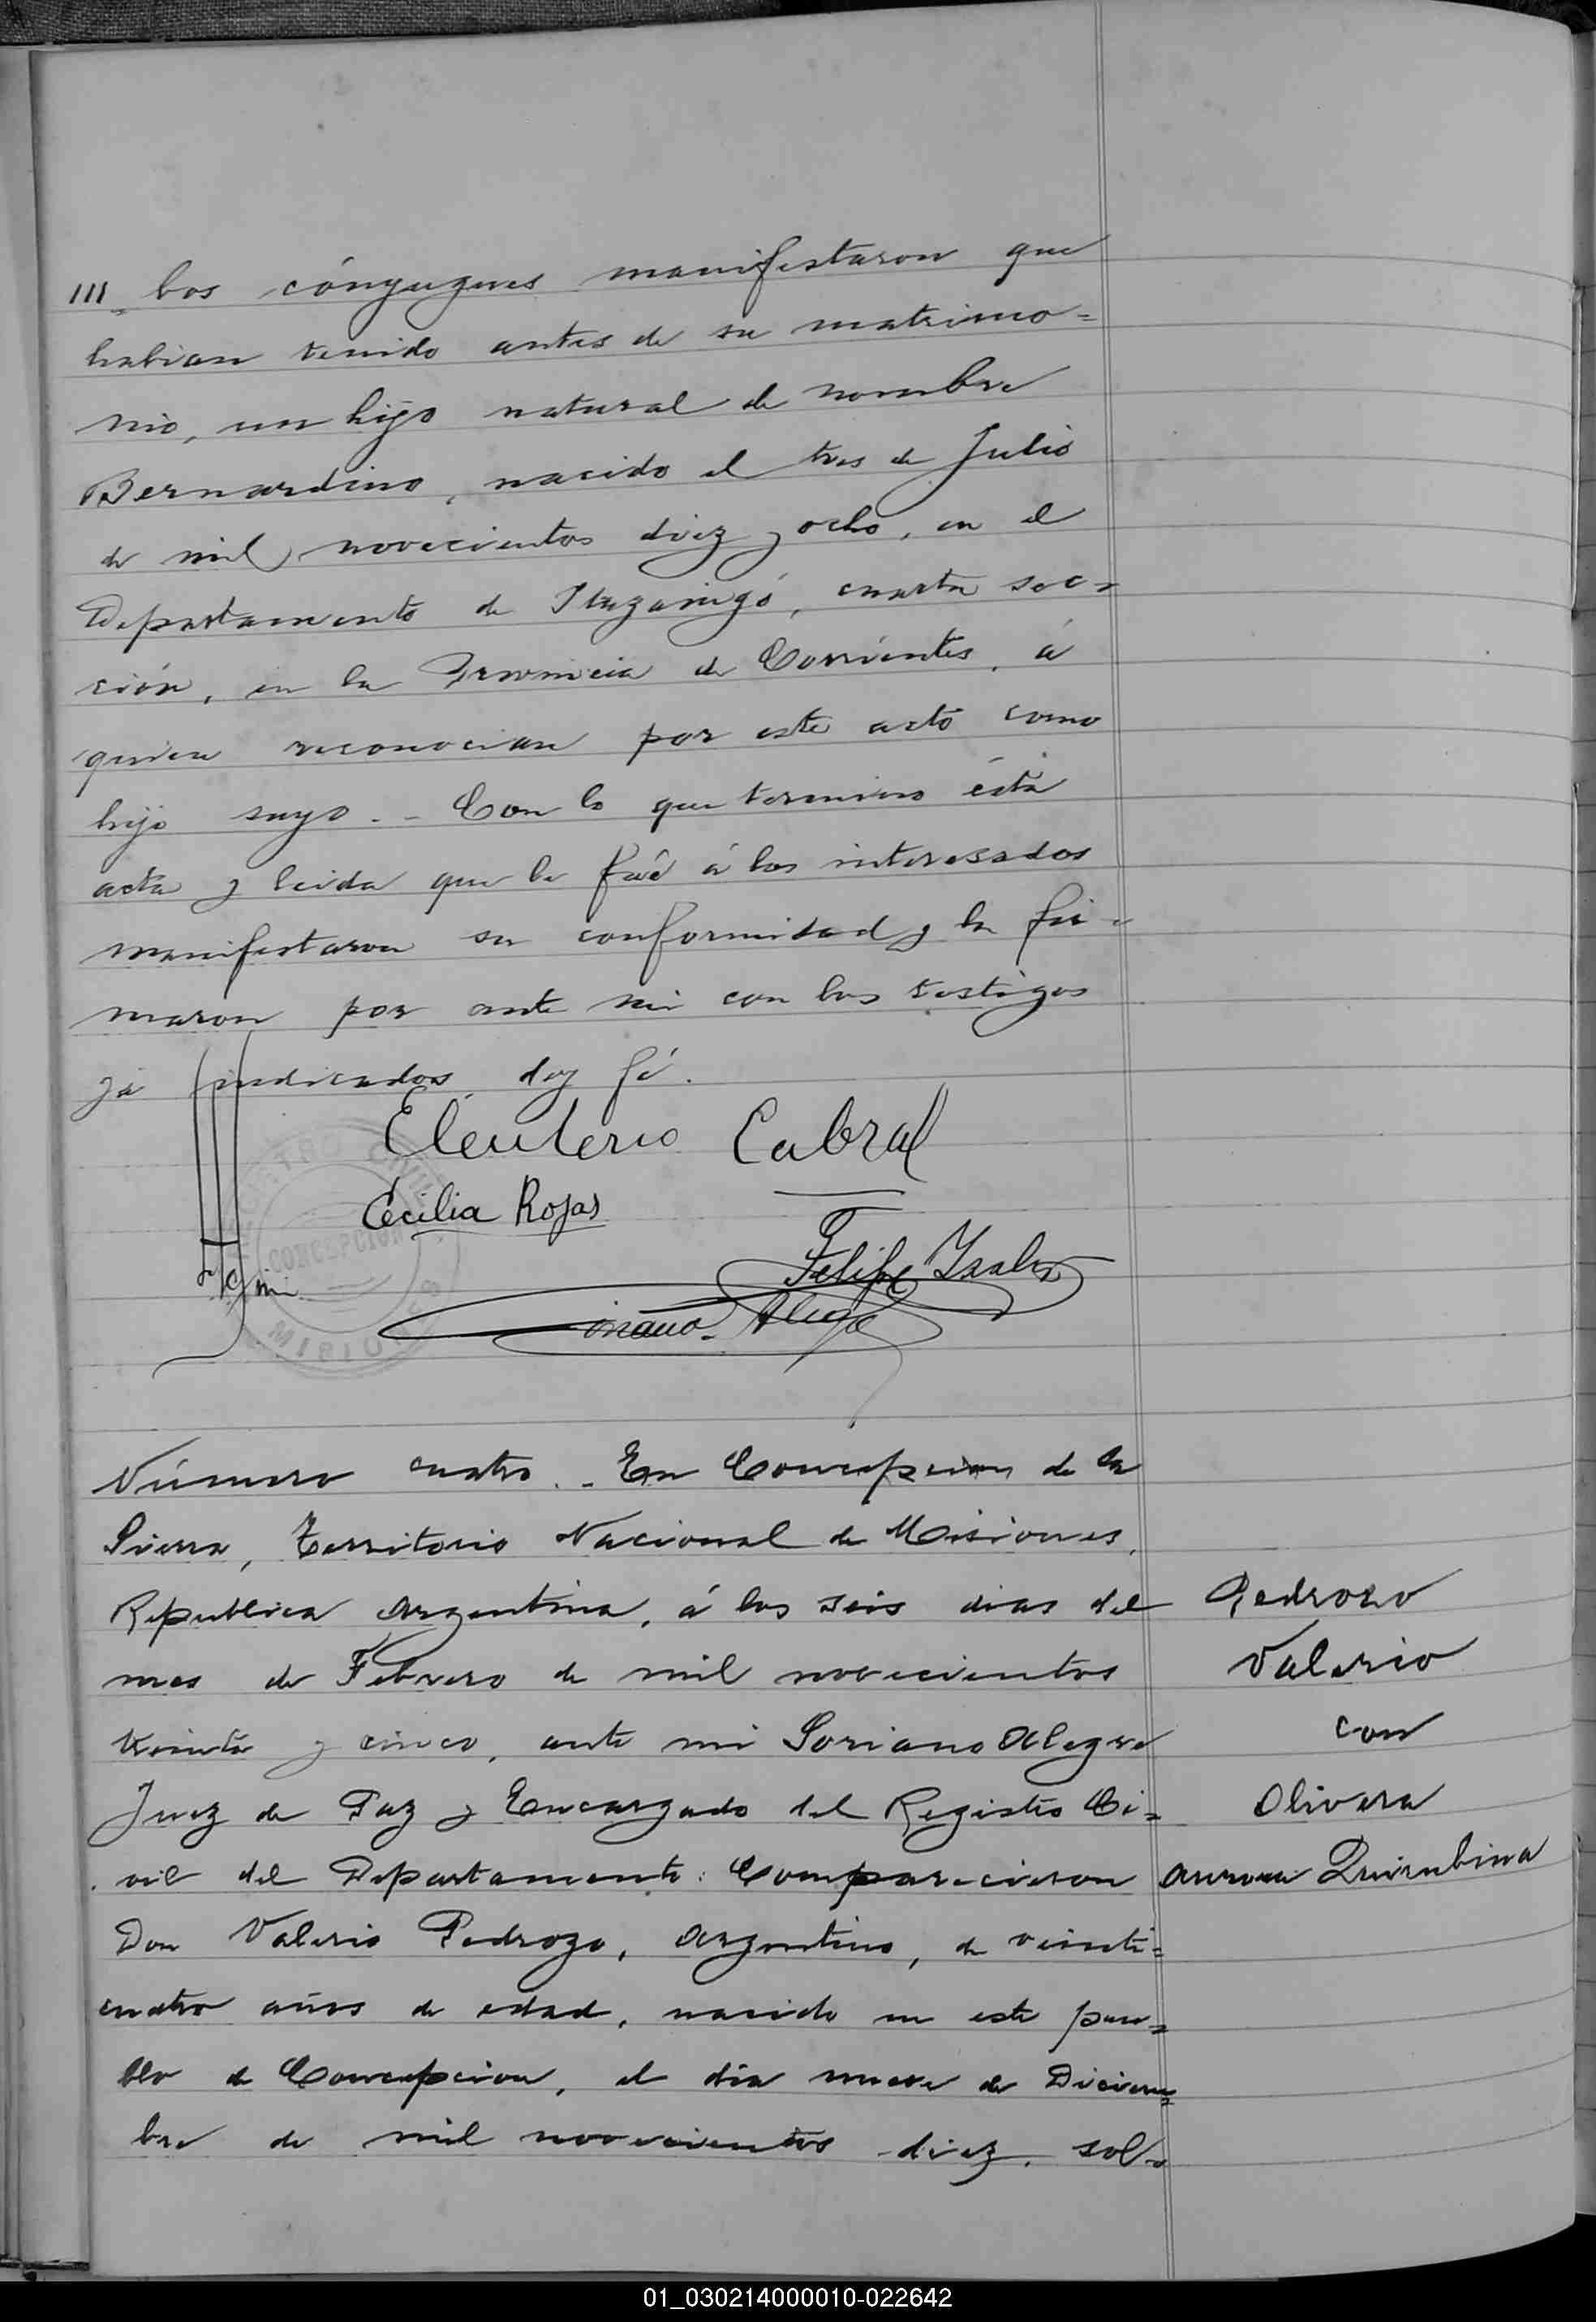 III_ Los cónyugues manifestaron que
habian tenido antes de su matrimo=
nio, un hijo natural de nombre
Bernardino, nacido el tres de Julio
de mil novecientos diez y ocho, en el
Departamento de Ituzaingó, cuarta sec=
ción, en la Provincia de Corrientes, á
quien reconocian por este acto como
hijo suyo. - Con lo que termino ésta
acta y leida que le fué á los interesados
manifestaron su conformidad y la fir=
maron por ante mi con los testigos
ya indicados, doy fé.
Eleuterio Cabral
Cecilia Rojas
Felipe
CONCEPCION
MISIONES
Número cuatro. - En Concepcion de la
Sierra, Territorio Nacional de Misiones,
Republica Argentina, á los seis dias del
mes de Febrero de mil novecientos
treinta y cinco, ante mi Soriano Alegre
Juez de Paz y Encargado del Registro Ci=
vil del Departamento: Comparecieron
Don Valerio Pedrozo, Argentino, de veinti=
cuatro años de edad, nacido en este pue=
blo de Concepcion, el dia nueve de Diciem=
bre de mil novecientos diez, sol=
Pedrozo
Valerio
con
Olivera
Aurora Quirubina
01_030214000010-022642